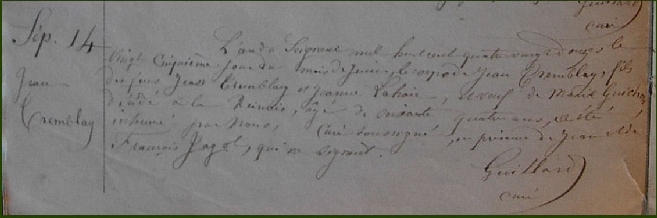 Guillard
curé
Sép. 14
Jean
Tremblay
L'an du Seigneur mil huit cent quatre vingt douze le
vingt cinquième jour du mois de Juin, le corps de Jean Tremblay, fils
des feus Jean Tremblay et Jeanne Lahaie, veuf de Marie Guichon
décédé à la Réunion, âgé de soixante quatre ans, a été
inhumé par Nous, curé soussigné, en présence de Jean et de
François Pagot, qui ne signent.
Guillard
curé